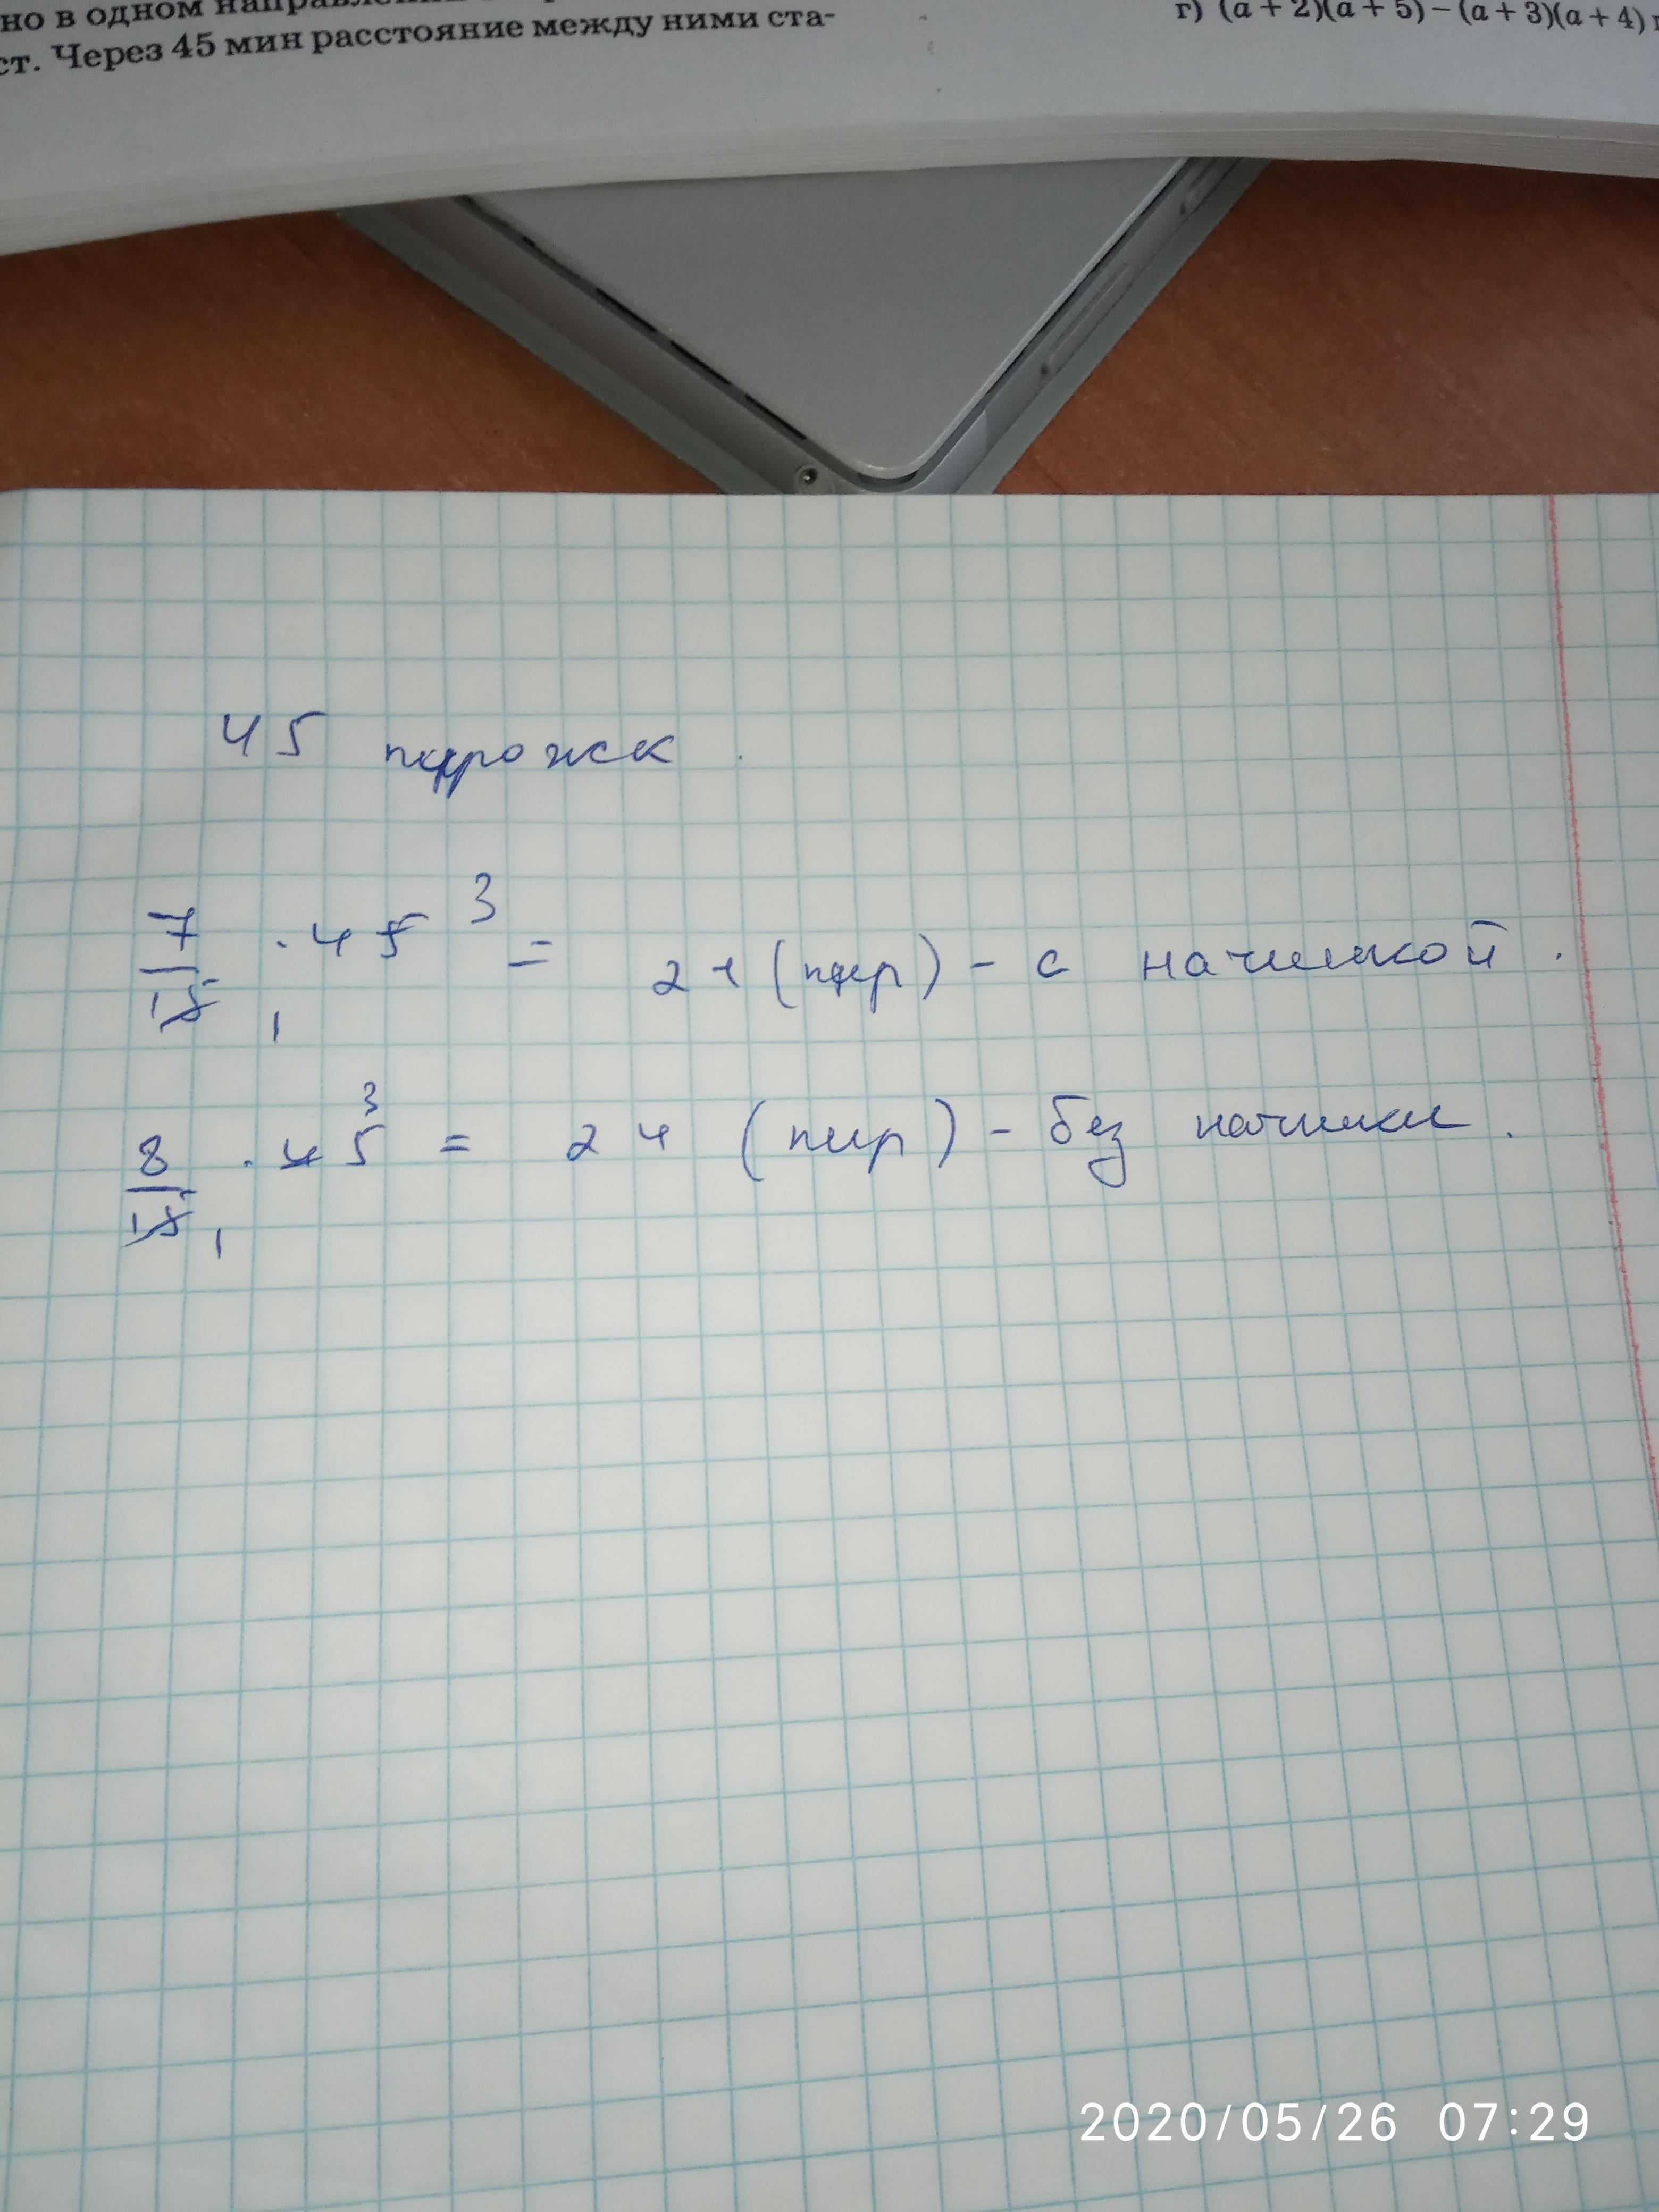 но в одном
ст. Через 45 мин расстояние между ними ста-
г) (a + 2)(a + 5) – (a + 3)(a + 4)
45 пирожк
7/15 1 · 45 3 = 21 (пир) - с начинкой.
8/15 1 · 45 3 = 24 (пир) - без начинки.
2020/05/26 07:29